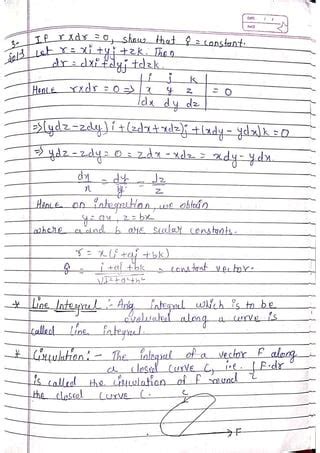 3. If r×dr = 0, show that r̂ = constant.
Sol→ Let r = xi + yj + zk. Then
dr = dxi + dyj + dzk.
Hence r×dr = 0 ⇒ | i j k |
| x y z | = 0
| dx dy dz |
⇒ (ydz - zdy) i + (zdx + xdz) j + (xdy - ydx) k = 0
⇒ ydz - zdy = 0 = zdx - xdz = xdy - ydx.
dx/x = dy/y = dz/z
Hence on integration, we obtain
y = ax, z = bx
where a and b are scalar constants.
r = x(i + aj + bk)
r̂ = i + aj + bk / √1²+a²+b² = constant vector.
* Line Integral :- Any integral which is to be
evaluated along a curve is
called line integral.
* Circulation :- The integral of a vector F along
a closed curve C, i.e. ∫ F.dr
is called the circulation of F round
the closed curve C.
C
→ F